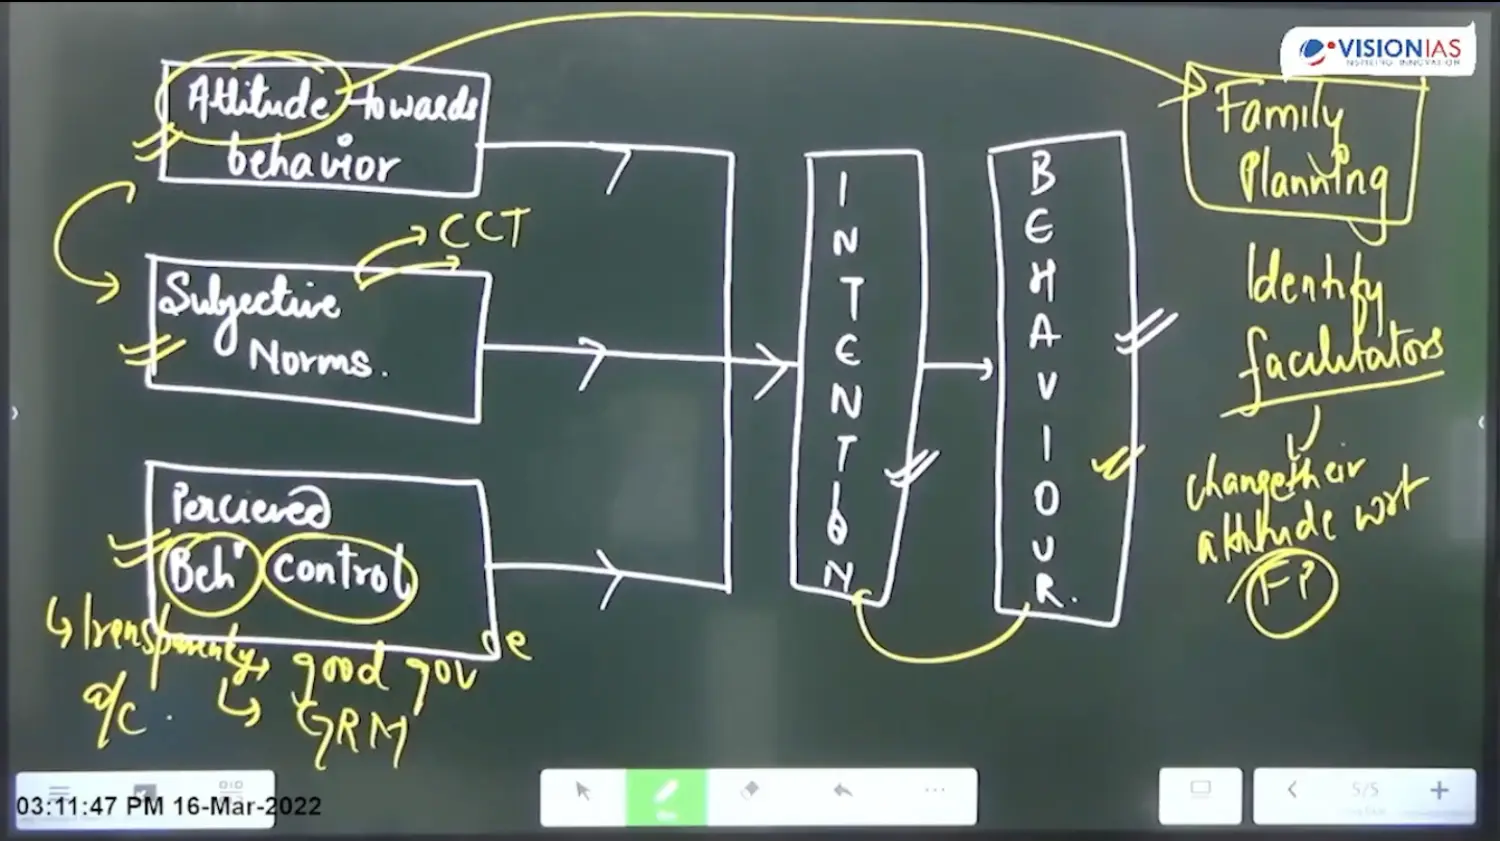 VISIONIAS
INSPIRING INNOVATION
Attitude towards
behavior
CCT
Subjective
Norms.
Percieved
Beh^r control
transparency,
a/c.
good gov^ce
GRM
INTENTION
BEHAVIOUR.
Family
Planning
Identify
facilitators
change their
attitude wrt
FP
5/5
03:11:47 PM 16-Mar-2022